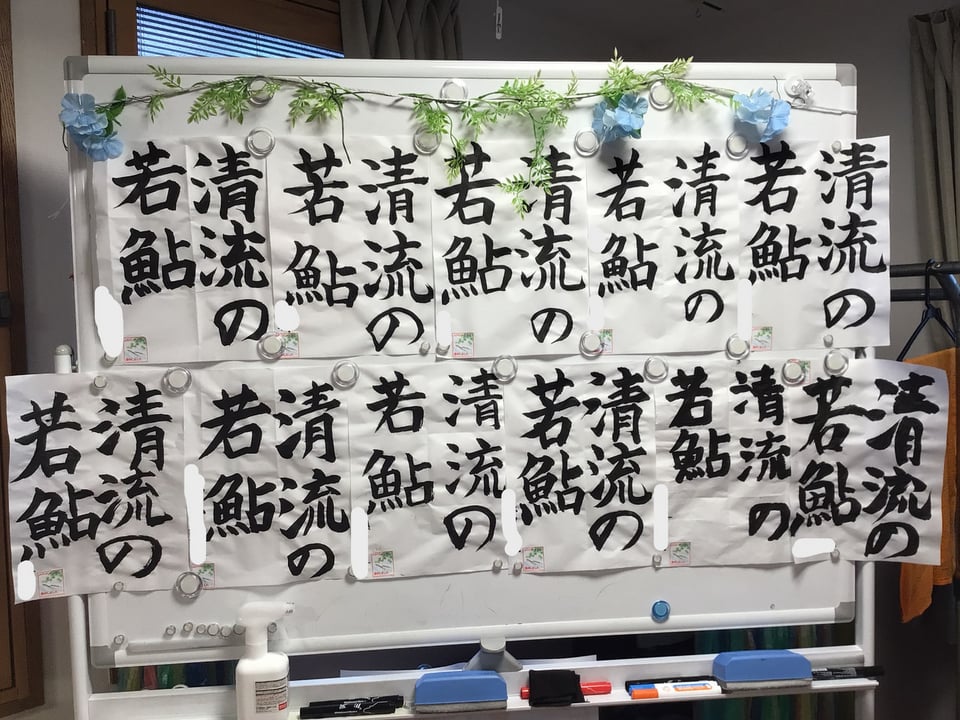 清流の
若鮎
清流の
若鮎
清流の
若鮎
清流の
若鮎
清流の
若鮎
清流の
若鮎
清流の
若鮎
清流の
若鮎
清流の
若鮎
清流の
若鮎
清流の
若鮎